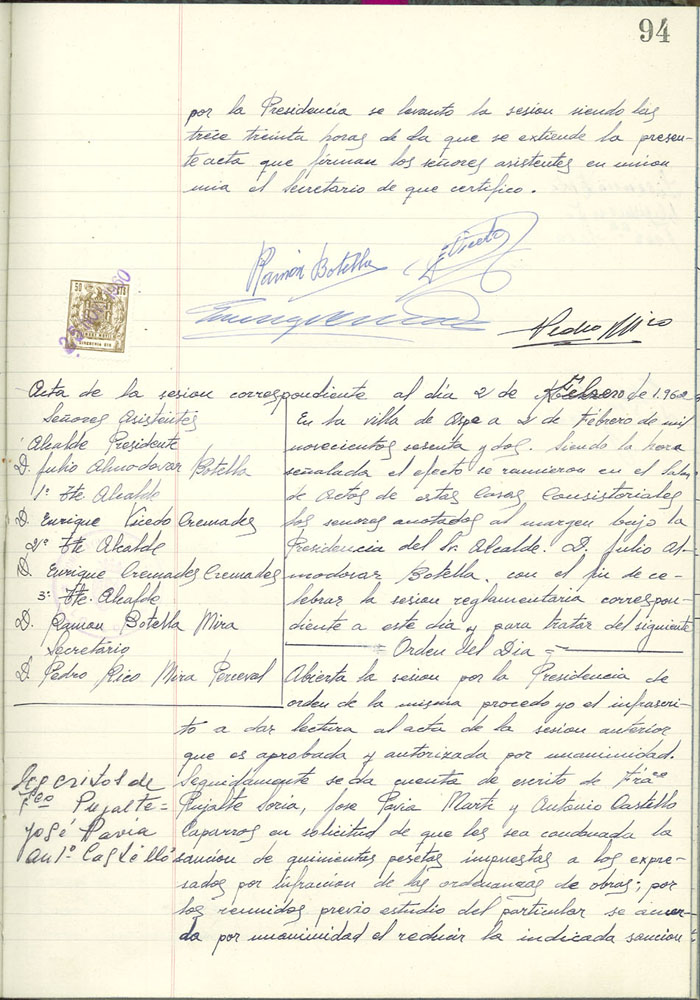 94
por la Presidencia se levanto la sesion siendo las
trece treinta horas de la que se extiende la presen-
te acta que firman los señores asistentes en union
mia el Secretario de que certifico.
Ramón Botella
Pedro Rico
50 CTS
Acta de la sesion correspondiente al dia 2 de Febrero de 1.962
Señores Asistentes
Alcalde Presidente
D. Julio Almodovar Botella
1º Tte Alcalde
D. Enrique Vicedo Cremades
2º Tte Alcalde
D. Enrique Cremades Cremades
3º Tte. Alcalde
D. Ramon Botella Mira
Secretario
D. Pedro Rico Mira Perceval
En la villa de Aspe a 2 de Febrero de mil
novecientos sesenta y dos. Siendo la hora
señalada el efecto se reunieron en el Salon
de Actos de estas Casas Consistoriales
los señores anotados al margen bajo la
Presidencia del Sr. Alcalde. D. Julio Al-
modovar Botella, con el fin de ce-
lebrar la sesion reglamentaria correspon-
diente a este dia y para tratar del siguiente
Orden del Dia =
Abierta la sesion por la Presidencia de
orden de la misma procedo yo el infrascri-
to a dar lectura al acta de la sesion anterior
que es aprobada y autorizada por unanimidad.
Escritos de
Fco Pujalte =
José Pavia
Antº Castelló
Seguidamente se da cuenta de escrito de Frаco
Pujalte Soria, Jose Pavia Marti y Antonio Castello
Caparros en solicitud de que les sea condonada la
sancion de quinientas pesetas impuestas a los expre-
sados por infracion de las ordenanzas de obras; por
los reunidos previo estudio del particular se acuer-
da por unanimidad el reducir la indicada sancion